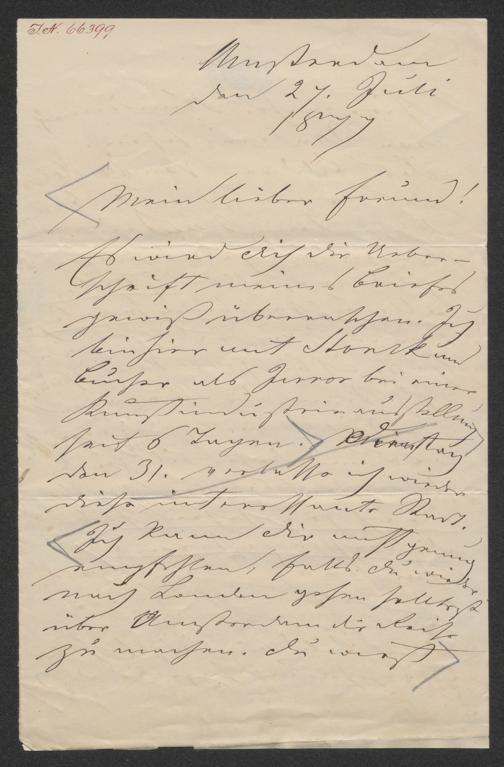 I.N. 66399
Amsterdam
den 27. Juli
1877
Mein lieber Freund!
Es wird dich die Ueber-
schrift meines Briefes
gewiß überraschen. Ich
bin hier mit Storck und
Bucher als Juror bei einer
Kunstindustrieausstellung
seit 6 Tagen. Dienstag
den 31. verlasse ich wieder
diese interessante Stadt.
Ich kann dir nicht genug
empfehlen, falls du wieder
nach London gehen solltest
über Amsterdam die Reise
zu machen. Du wirst